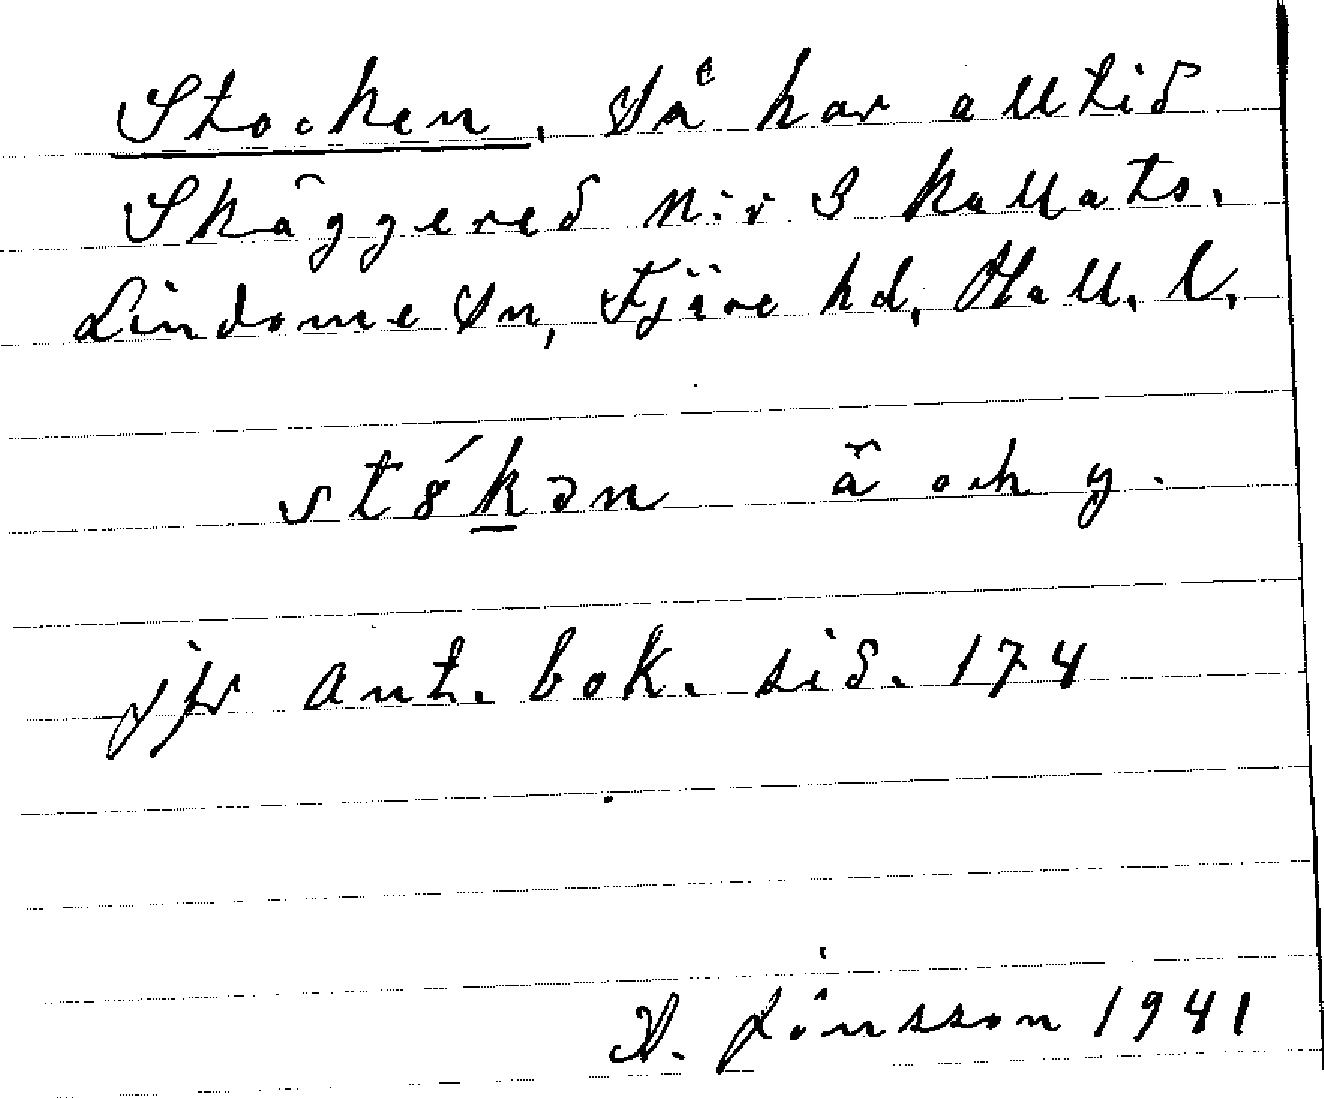 Stocken. Så har alltid
Skäggered N:r 3 kallats.
Lindome Sn, Fjäre hd, Hall. l.
stókən ä och y.
jfr Ant. bok. sid. 174
Jönsson 1941